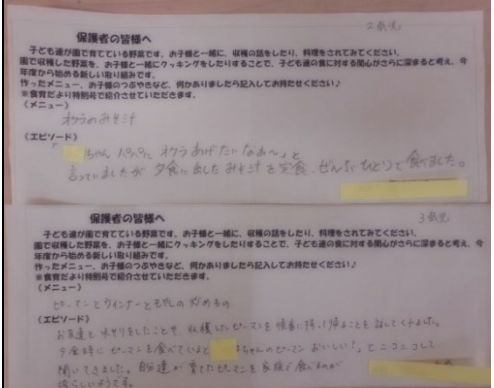 2歳児
保護者の皆様へ
子ども達が園で育てている野菜です。お子様と一緒に、収穫の話をしたり、料理をされてみてください。
園で収穫した野菜を、お子様と一緒にクッキングをしたりすることで、子ども達の食に対する関心がさらに深まると考え、今
年度から始める新しい取り組みです。
作ったメニュー、お子様のつぶやきなど、何かありましたら記入してお持たせください♪
※食育だより特別号で紹介させていただきます。
(メニュー)
オクラのみそ汁
(エピソード)
「 ちゃん パパに オクラあげたいなぁ〜」と
言っていましたが 夕食に出したみそ汁を完食、ぜんぶひとりで食べました。
3歳児
保護者の皆様へ
子ども達が園で育てている野菜です。お子様と一緒に、収穫の話をしたり、料理をされてみてください。
園で収穫した野菜を、お子様と一緒にクッキングをしたりすることで、子ども達の食に対する関心がさらに深まると考え、今
年度から始める新しい取り組みです。
作ったメニュー、お子様のつぶやきなど、何かありましたら記入してお持たせください♪
※食育だより特別号で紹介させていただきます。
(メニュー)
ピーマンとウインナーともやしの炒めもの
(エピソード)
お友達と水やりをしたことや、収穫したピーマンを順番に持って帰ることを話してくれました。
夕食時にピーマンを食べていると ちゃんのピーマンおいしい?」とニコニコして
聞いてきました。自分達が育てたピーマンを家族で食べるのが
うれしいようです。